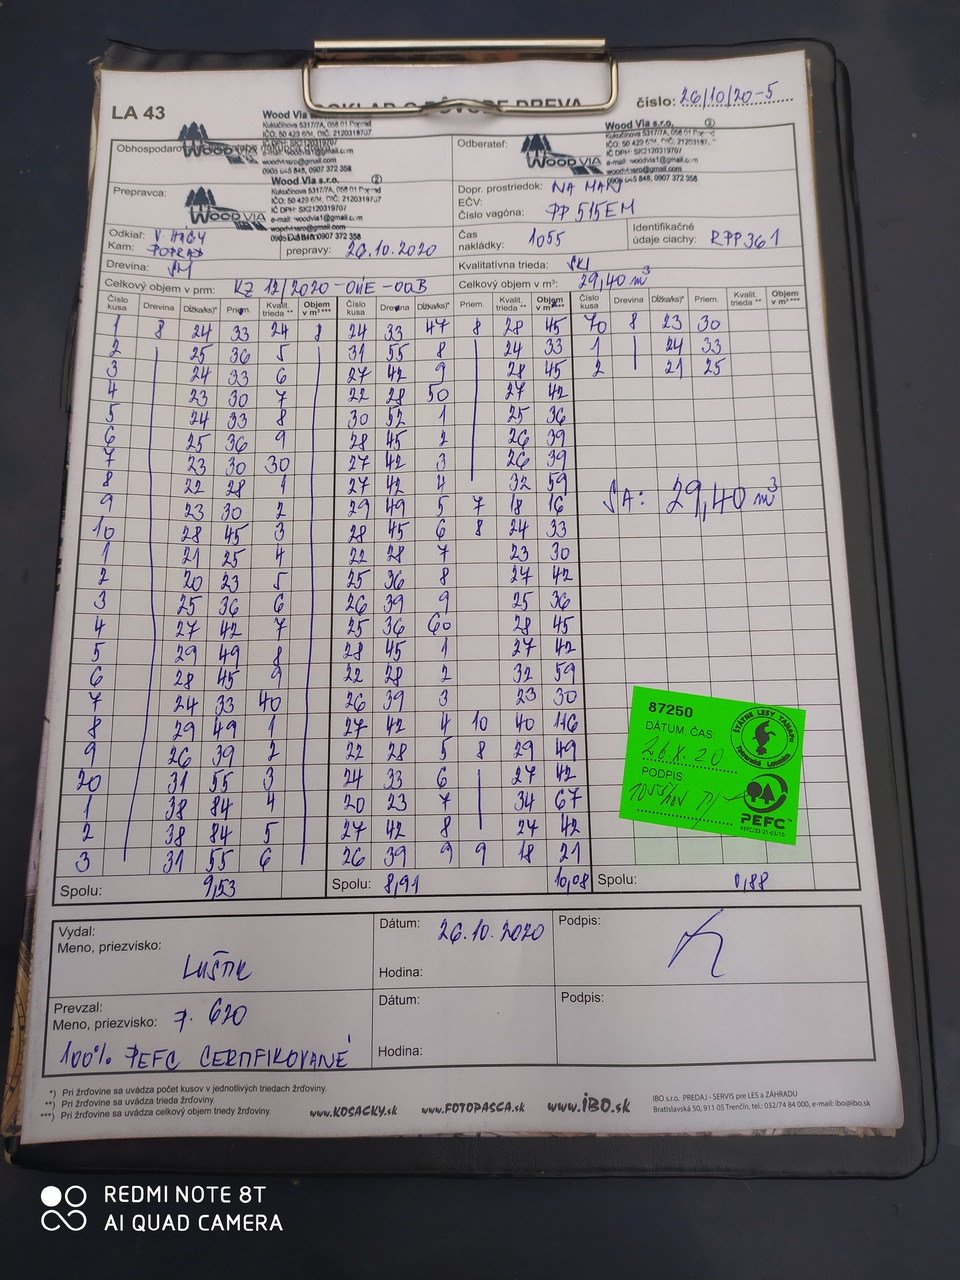 LA 43
DOKLAD O PÔVODE DREVA
číslo: 26/10/20-5
Wood Via s.r.o. ②
Kukučínova 5317/7A, 058 01 Poprad
IČ DPH: SK2120319707
e-mail: woodvia1@gmail.com
WOOD VIA
Odberateľ:
Prepravca:
Wood Via s.r.o. ②
Kukučínova 5317/7A, 058 01 Poprad
IČO: 50 423 604, DIČ: 2120319707
IČ DPH: SK2120319707
e-mail: woodvia1@gmail.com
0905 645 848, 0907 372 358
WOOD VIA
Dopr. prostriedok: NA MAKJ
EČV:
Číslo vagóna: PP 515EM
Odkiaľ: V. HÁGY
Kam: POPRAD
Dátum prepravy: 26.10.2020
Čas nakládky: 1055
Identifikačné údaje ciachy: RPP361
Drevina: SM
Kvalitatívna trieda:
Celkový objem v prm: KZ 12/2020-OÚE-OQB
Celkový objem v m³: 29,40 m³
Číslo kusa Drevina Dĺžka/ks)* Priem. Kvalit. trieda ** Objem v m³ *** Číslo kusa Drevina Dĺžka/ks)* Priem. Kvalit. trieda ** Objem v m³ *** Číslo kusa Drevina Dĺžka/ks)* Priem. Kvalit. trieda ** Objem v m³ ***
1 8 24 33 24 8 24 33 47 8 28 45 70 8 23 30
2 25 36 5 31 55 8 24 33 1 24 33
3 24 33 6 27 42 9 28 45 2 21 25
4 23 30 7 22 28 50 27 42
5 24 33 8 30 52 1 25 36
6 25 36 9 28 45 2 26 39
7 23 30 30 27 42 3 26 39
8 22 28 1 27 42 4 32 59
9 23 30 2 29 49 5 7 18 16
SA: 29,40 m³
10 28 45 3 28 45 6 8 24 33
1 21 25 4 22 28 7 23 30
2 20 23 5 25 36 8 27 42
3 25 36 6 26 39 9 25 36
4 27 42 7 25 36 60 28 45
5 29 49 8 28 45 1 27 42
6 28 45 9 22 28 2 32 59
7 24 33 40 26 39 3 23 30
8 29 49 1 27 42 4 10 40 116
9 26 39 2 22 28 5 8 29 49
20 31 55 3 24 33 6 27 42
1 38 84 4 20 23 7 34 67
2 38 84 5 27 42 8 27 42
3 31 55 6 26 39 9 9 18 21
Spolu: 9,53 Spolu: 8,91 10,08 Spolu: 0,88
87250
DÁTUM, ČAS:
26.X.20
PODPIS
ŠTÁTNE LESY TANAPU
Tatranská Lomnica
PEFC™
Vydal:
Meno, priezvisko:
Dátum: 26.10.2020
Hodina:
Podpis:
Prevzal:
Meno, priezvisko: 7. 620
Dátum:
Hodina:
Podpis:
100% PEFC CERTIFIKOVANÉ
*) Pri žrďovine sa uvádza počet kusov v jednotlivých triedach žrďoviny.
**) Pri žrďovine sa uvádza trieda žrďoviny.
***) Pri žrďovine sa uvádza celkový objem triedy žrďoviny.
www.KOSACKY.sk www.FOTOPASCA.sk www.iBO.sk
IBO s.r.o. PREDAJ - SERVIS pre LES a ZÁHRADU
Bratislavská 50, 911 05 Trenčín, tel.: 032/74 84 000, e-mail: ibo@ibo.sk
REDMI NOTE 8T
AI QUAD CAMERA